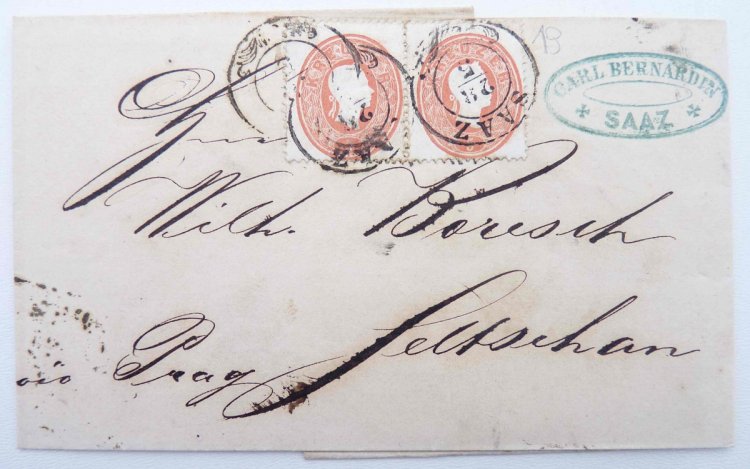 13
CARL BERNARDIN
SAAZ
SAAZ
SAAZ
Herrn
Wilh. Boresch
Seltschan
via Prag